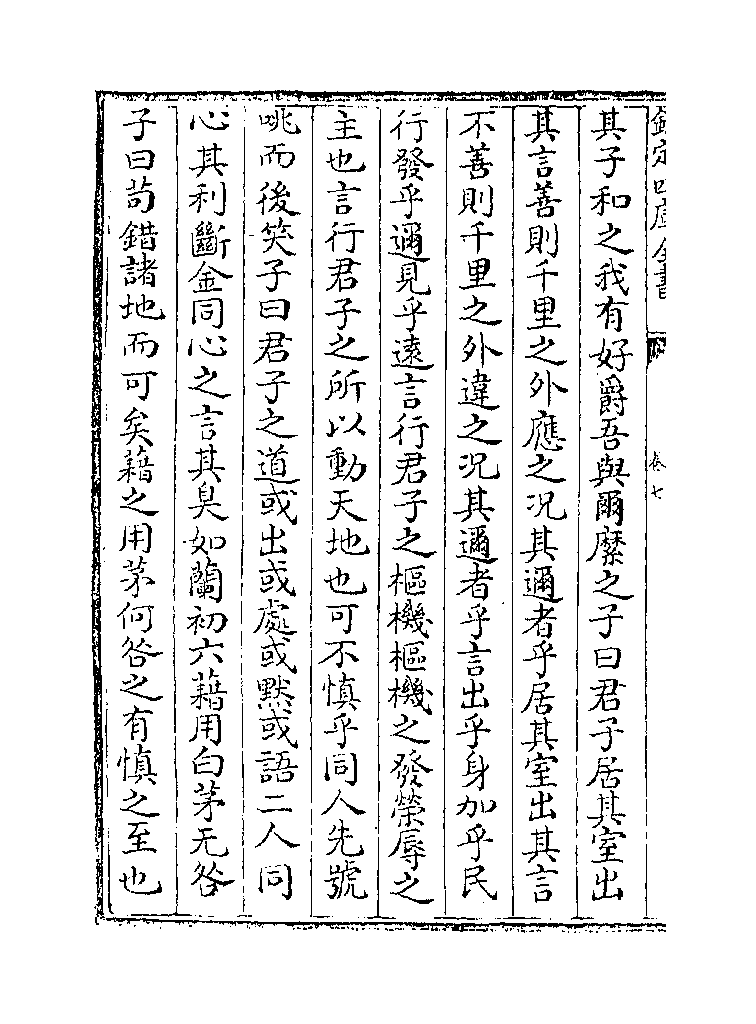 欽定四庫全書
卷七
其子和之我有好爵吾與爾縻之子曰君子居其室出
其言善則千里之外應之况其邇者乎居其室出其言
不善則千里之外違之况其邇者乎言出乎身加乎民
行發乎邇見乎遠言行君子之樞機樞機之發榮辱之
主也言行君子之所以動天地也可不慎乎同人先號
咷而後笑子曰君子之道或出或處或黙或語二人同
心其利斷金同心之言其臭如蘭初六藉用白茅无咎
子曰茍錯諸地而可矣藉之用茅何咎之有慎之至也